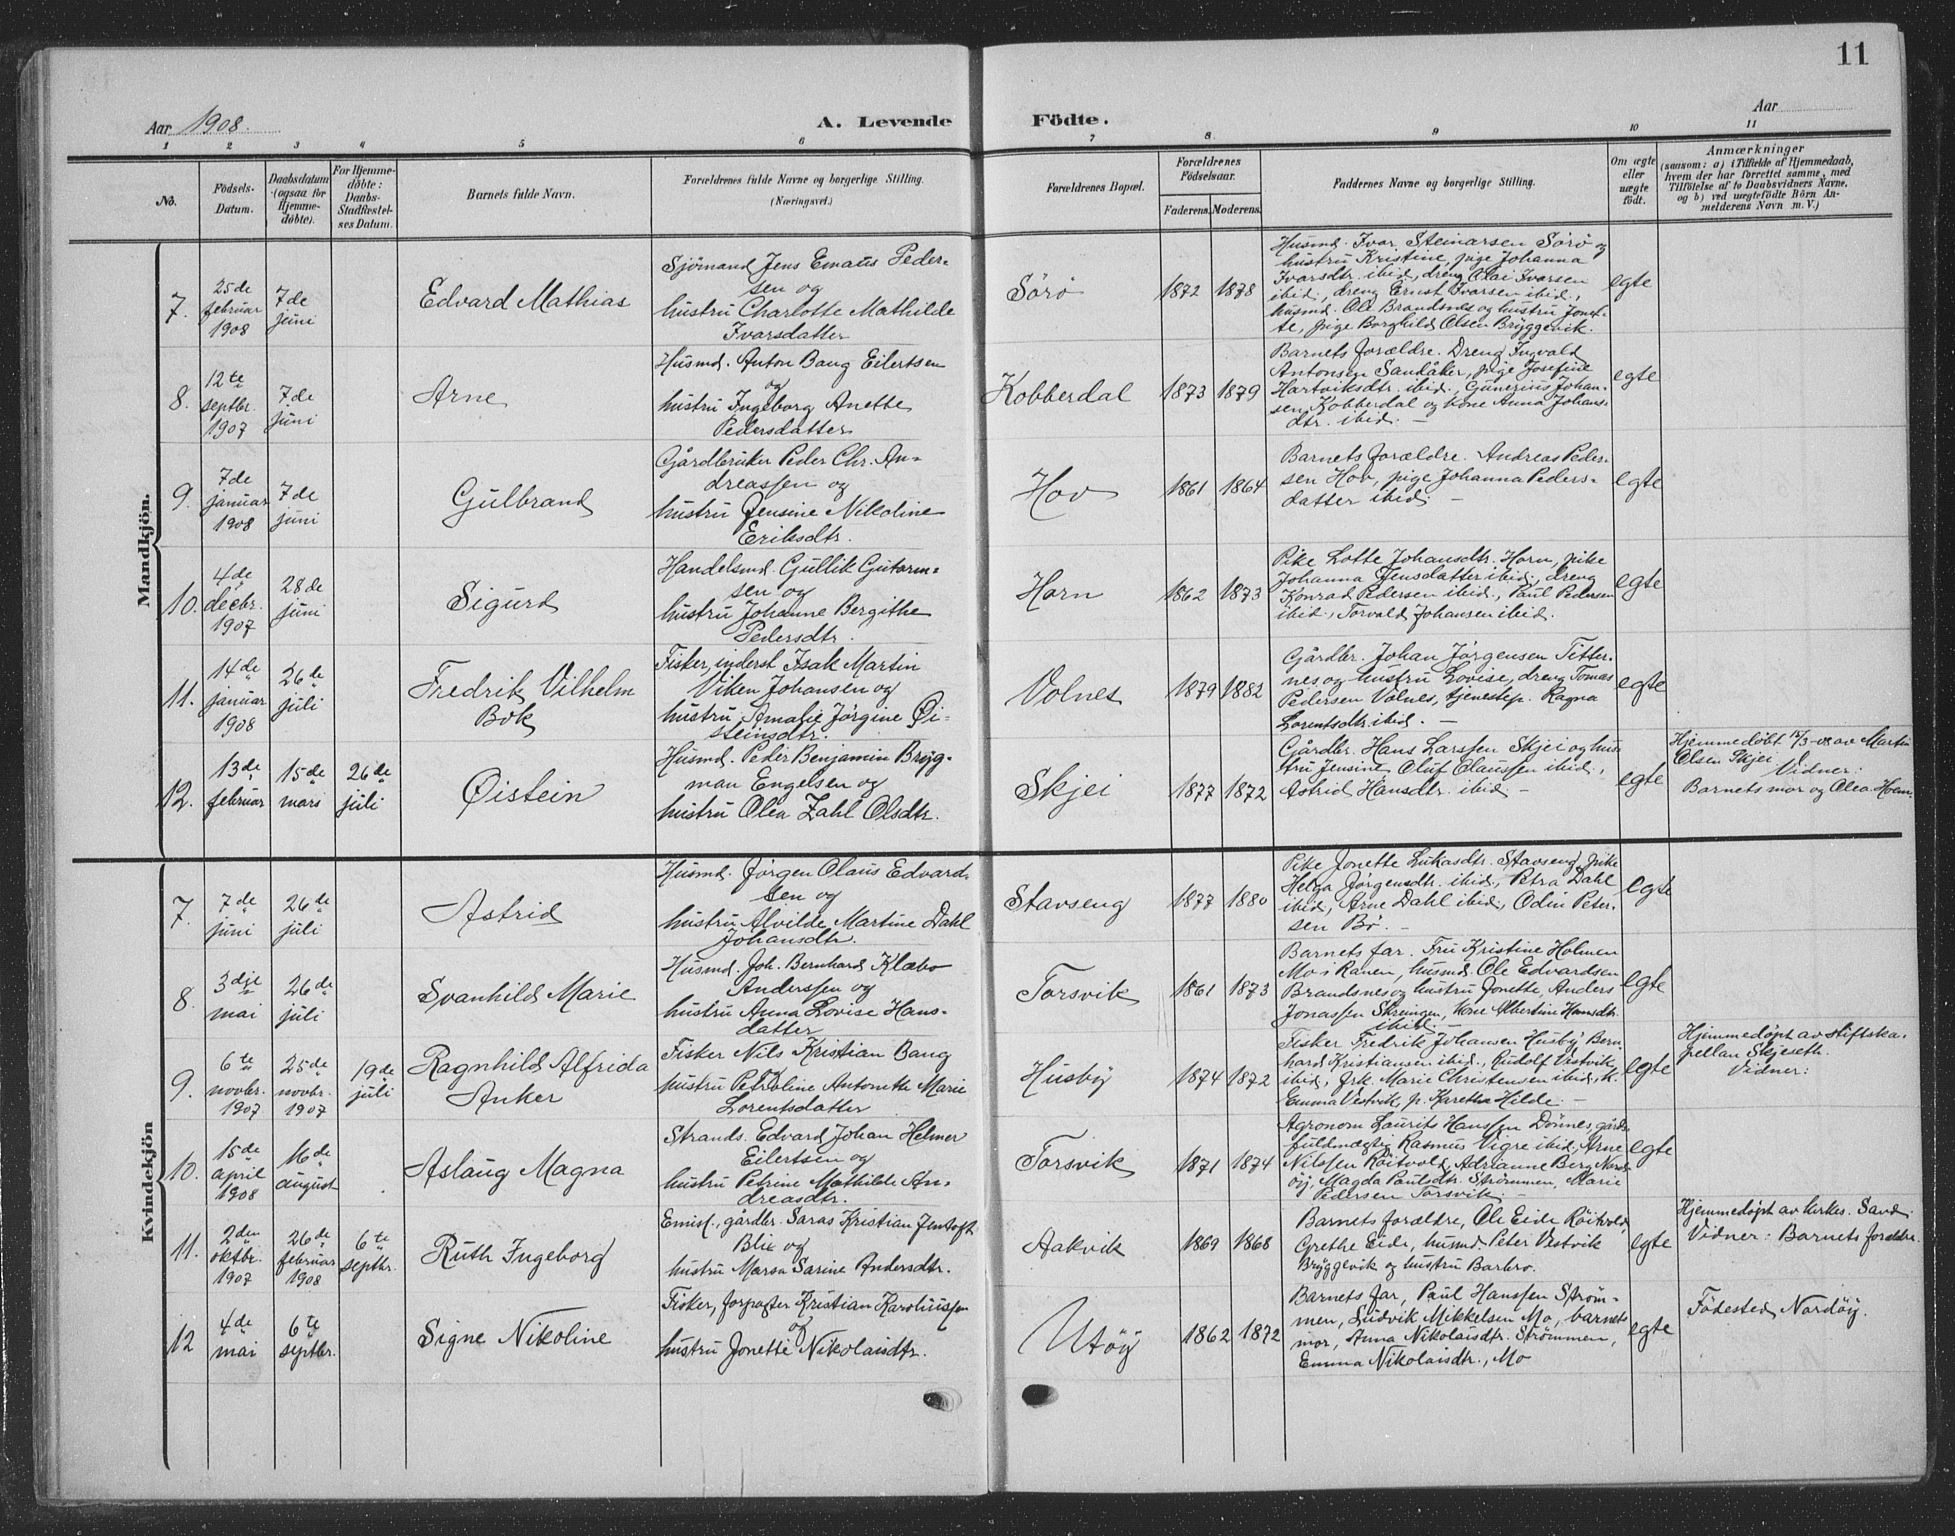 11
Aar 1908.
A. Levende Födte.
Aar
1 2 3 4 5 6 7 8 9 10 11
No.
Födsels-
Datum.
Daabsdatum
(ogsaa for
Hjemme-
döbte).
For Hjemme-
döbte:
Daabs-
Stadfæstel-
ses Datum.
Barnets fulde Navn.
Forældrenes fulde Navne og borgerlige Stilling.
(Næringsvei.)
Forældrenes Bopæl.
Forældrenes
Födselsaar.
Faderens. Moderens.
Faddernes Navne og borgerlige Stilling.
Om ægte
eller
uægte
födt.
Anmærkninger
(saasom: a) i Tilfælde af Hjemmedaab,
hvem der har forrettet samme, med
Tilföielse af to Daabsvidners Navne.
og b) ved uægtefödte Börn An-
melderens Navn m. V.)
Mandkjön.
7.
25de
februar
1908
7de
juni
Edvard Mathias
Sjömand Jens Emaus Peder-
sen og
hustru Charlotte Mathilde
Ivarsdatter
Sörö
1872 1878
Husmd. Ivar Steinarsen Sörö og
hustru Kristine, pige Johanna
Ivarsdtr. ibid, dreng Olai Ivarsen
ibid., dreng Ernst Ivarsen ibid.,
husmd. Ole Brandsnes og hustru Jonet-
te, pige Borghild Olsen Bryggevik.
egte
8.
12te
septbr.
1907
7de
juni
Arne
Husmd. Anton Bang Eilertsen
og
hustru Ingeborg Anette
Pedersdatter
Kobberdal
1873 1879
Barnets forældre. Dreng Ingvald
Antonsen Sandåker, pige Josefine
Hartviksdtr. ibid., Gunerius Johan-
sen Kobberdal og kone Anna Johans-
dtr. ibid. –
egte
9.
7de
januar
1908
7de
juni
Gulbrand
Gårdbruker Peder Chr. An-
dreassen og
hustru Jensine Nikoline
Eriksdtr.
Hov
1861 1864
Barnets forældre. Andreas Peder-
sen Hov, pige Johanna Peders-
datter ibid. –
egte
10.
4de
decbr.
1907
28de
juni
Sigurd
Handelsmd. Gullik Gutorm-
sen og
hustru Johanne Bergithe
Pedersdtr.
Horn
1862 1873
Pike Lotte Johansdtr. Horn, pike
Johanna Jensdatter ibid., dreng
Konrad Pedersen ibid., Paul Pedersen
ibid., Torvald Johansen ibid.
egte
11.
14de
januar
1908
26de
juli
Fredrik Vilhelm
Bok
Fisker, inderst Isak Martin
Viken Johansen og
hustru Amalie Jörgine Øi-
steinsdtr.
Volnes
1879 1882
Gårdbr. Johan Jörgensen Titter-
nes og hustru Lovise, dreng Tomas
Pedersen Volnes, tjenestep. Ragna
Lorentsdtr. ibid. –
egte
12.
13de
februar
15de
mars
26de
juli
Øistein
Husmd. Peder Benjamin Bryg-
man Engelsen og
hustru Olea Zahl Olsdtr.
Skjei
1877 1872
Gårdbr. Hans Larssen Skjei og hus-
tru Jensine, Oluf Claussen ibid.,
Astrid Hansdtr. ibid –
egte
Hjemmedøbt 15/3-08 av Martin
Olsen Skjei
Vidner:
Barnets mor og Olea Holm.
Kvindekjön
7.
7de
juni
26de
juli
Astrid
Husmd. Jörgen Olaus Edvard-
sen og
hustru Alvilde Martine Dahl
Johansdtr.
Stavseng
1877 1880
Pike Jonette Lukasdtr. Stavseng, pike
Helga Jörgensdtr. ibid., Petra Dahl
ibid, Arne Dahl ibid., Odin Peter-
sen Bö. –
egte
8.
3dje
mai
26de
juli
Svanhild Marie
Husmd. Joh. Bernhard Klæbo
Anderssen og
hustru Anna Lovise Hans-
datter
Torsvik
1861 1873
Barnets far. Fru Kristine Holmen
Mo i Ranen, husmd. Ole Edvardsen
Brandsnes og hustru Jonette, Anders
Jonassen, kone Albertine Hansdtr.
ibid –
egte
9.
6te
novbr.
1907
25de
novbr.
1907
19de
juli
Ragnhild Alfrida
Anker
Fisker Nils Kristian Bang
og
hustru Petroline Antonette Marie
Lorentsdatter
Husby
1874 1872
Fisker Fredrik Johansen Husby, Bern-
hard Kristiansen ibid., Rudolf Vestvik
ibid., frk. Marie Christensen ibid., k.
Emma Vestvik, p. Karetha Hilde. –
egte
Hjemmedøpt av stiftska-
pellan Skjeseth.
Vidner:
10.
15de
april
1908
16de
august
Aslaug Magna
Strands. Edvard Johan Helmer
Eilertsen og
hustru Petrine Mathilde An-
dreasdtr.
Torsvik
1871 1874
Agronom Laurits Hanssen Dönnes, gårds-
fuldmægtig Rasmus Vigre ibid, Arne
Nilssen Röitvold, Adrianne Berg Nord-
öy, Magda Paulsdtr. Strömmen, Marie
Pedersen Torsvik. –
egte
11.
2den
oktbr.
1907
26de
februar
1908
6te
septbr.
Ruth Ingeborg
Emis., gårdbr. Saras Kristian Jentoft
Blix og
hustru Marsa Sarine Andersdtr.
Aakvik
1869 1868
Barnets forældre, Ole Eide Röitvold,
Grethe Eide, husmd. Peter Vestvik
Bryggevik og hustru Barbro.
egte
Hjemmedøpt av kirkes. Sand.
Vidner: Barnets forældre.
12
4de
mai
6te
septbr.
Signe Nikoline
Fisker, forpagter Kristian Karoliussen
og
hustru Jonette Nikolaisdtr.
Utöy
1862 1872
Barnets far, Paul Hanssen Ström-
men, Ludvik Mikkelsen Mo, barnets
mor, Anna Nikolaisdtr. Strömmen,
Emma Nikolaisdtr., Mo
egte
Födested Nordöy.